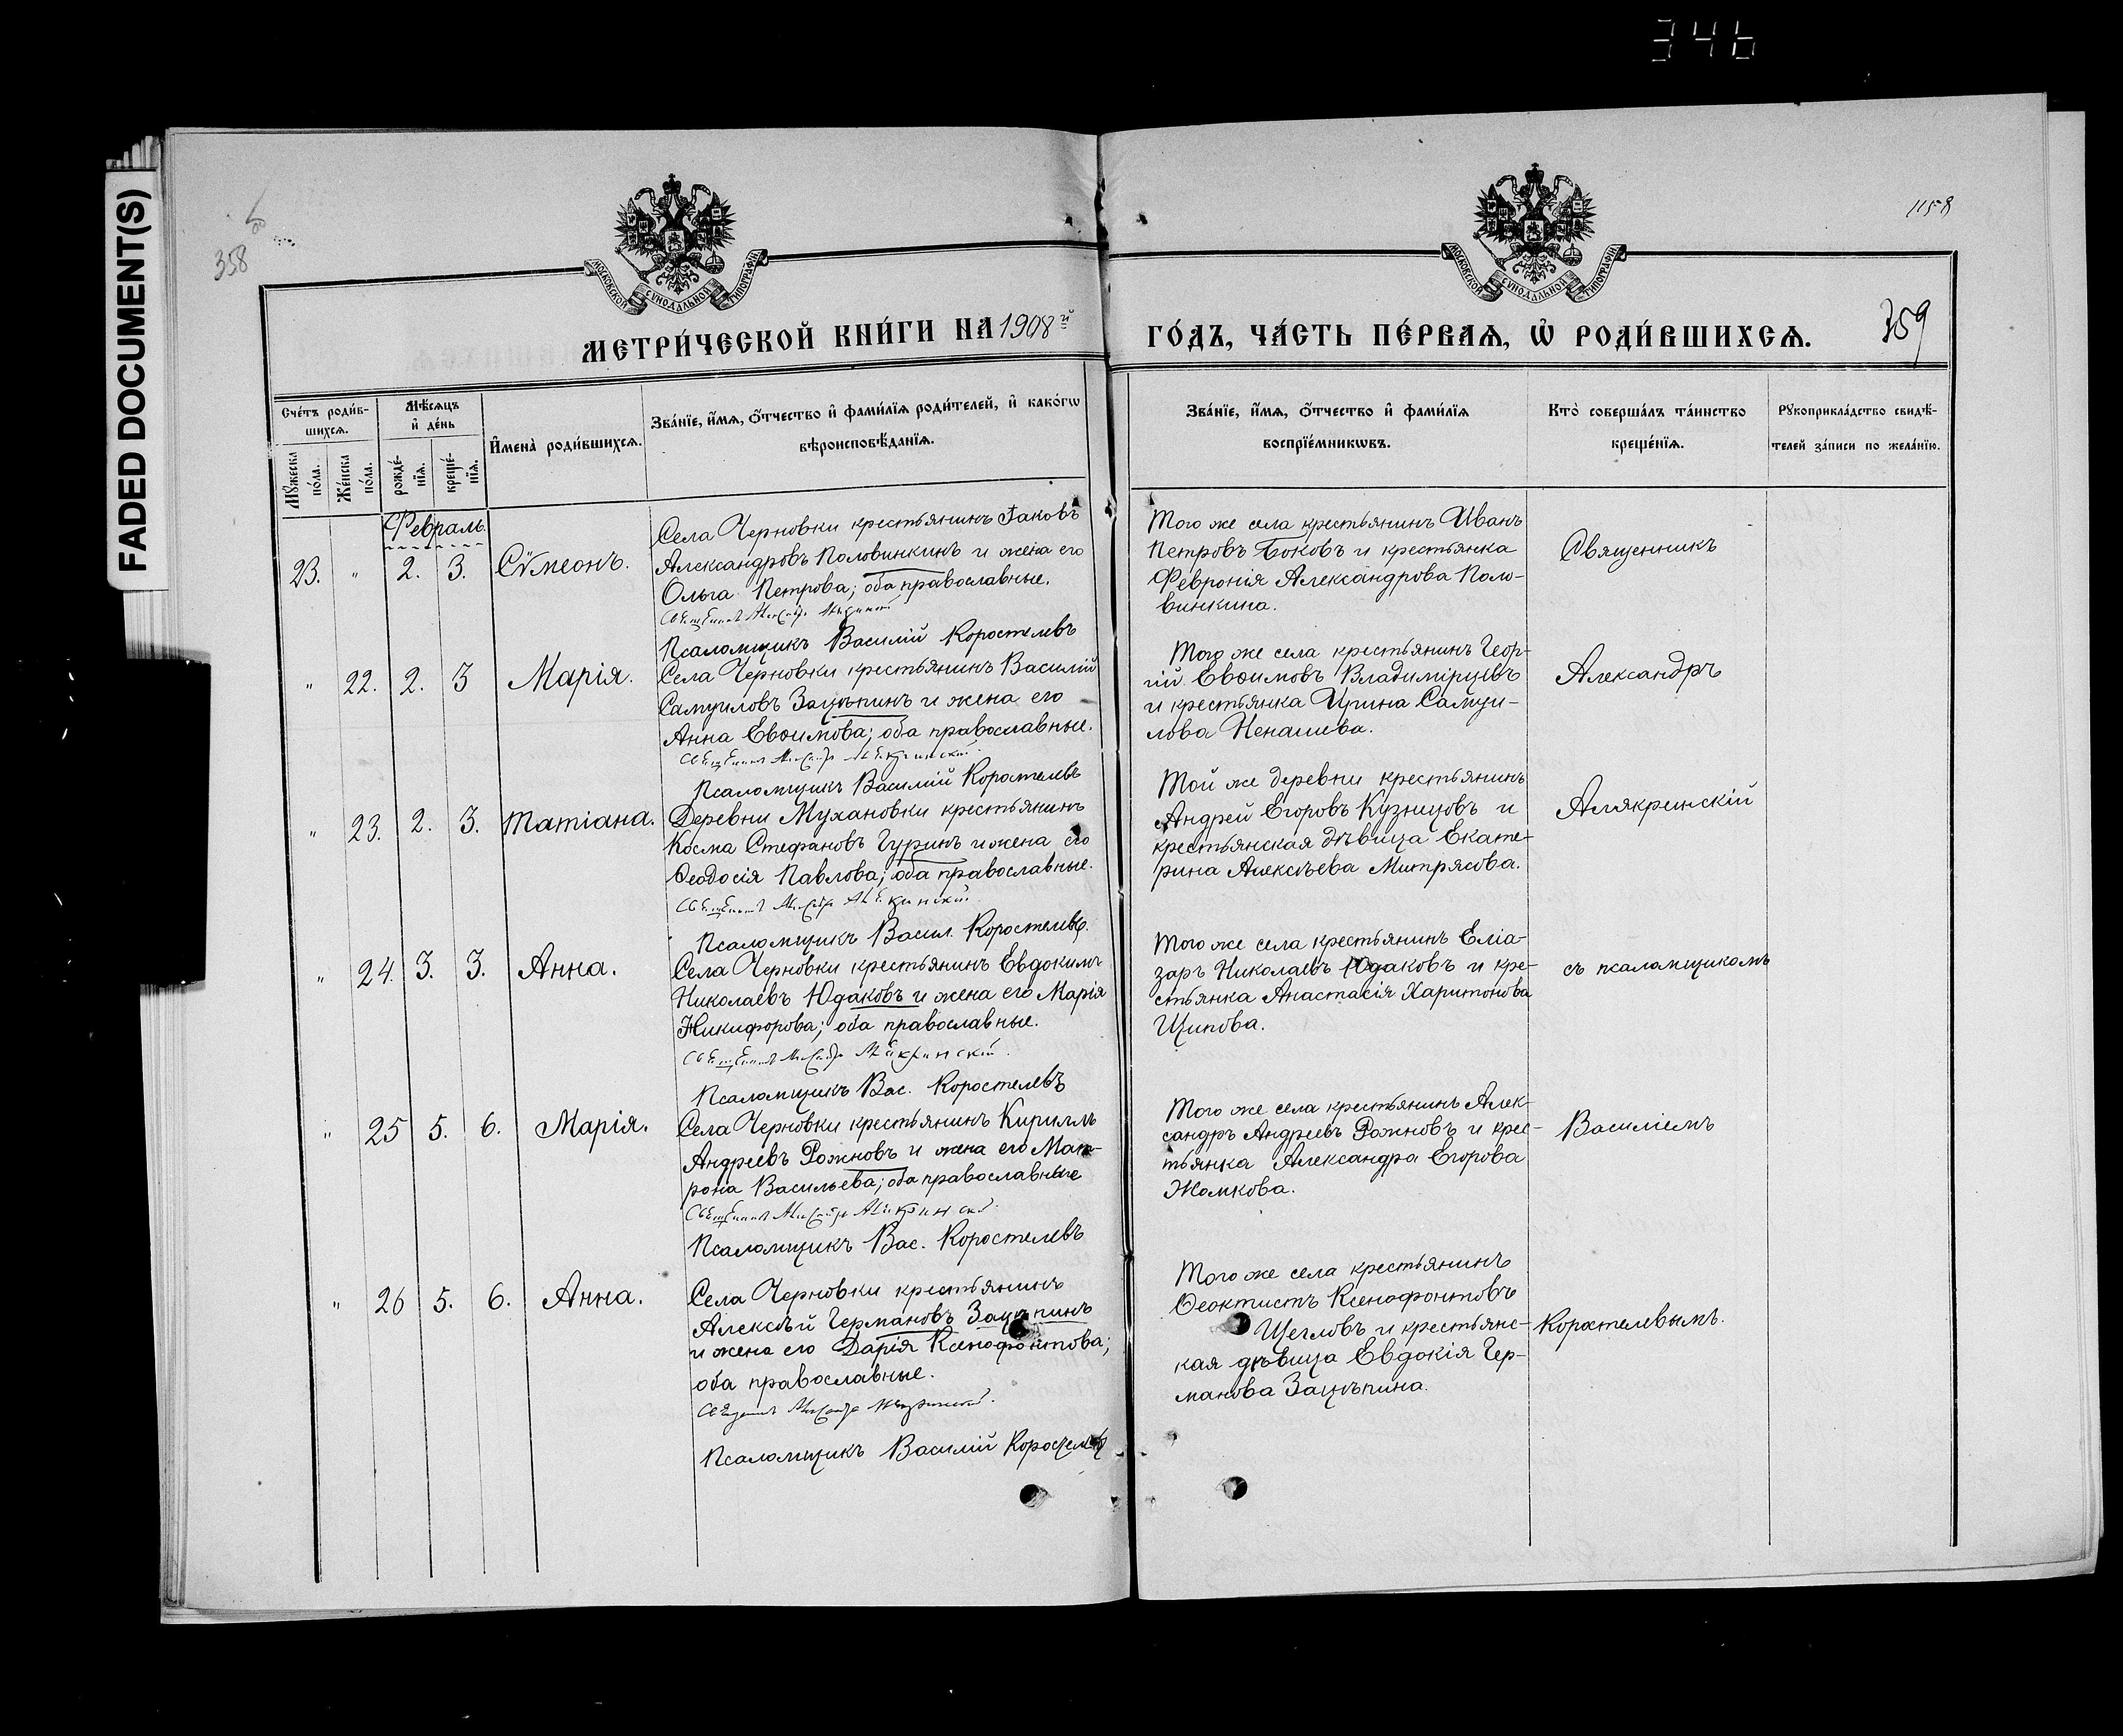 346
FADED DOCUMENT(S)
358
1158
МОСКОВСКОЙ СѴНОДАЛЬНОЙ ТИПОГРАФІИ
МОСКОВСКОЙ СѴНОДАЛЬНОЙ ТИПОГРАФІИ
МЕТРИ́ЧЕСКОЙ КНИ́ГИ НА 1908й
ГО́ДЪ, ЧА́СТЬ ПЕ́РВАѦ, Ѡ҆ РОДИ́ВШИХСѦ.
359
Сче́тъ роди́в-
шихсѧ.
Мꙋ́жеска по́ла.
Же́нска по́ла.
Мѣ́сѧцъ и҆ де́нь
рожде́-
нїѧ.
креще́-
нїѧ.
И҆мена̀ роди́вшихсѧ.
Зва́нїе, и҆́мѧ, ѻ҆́тчество и҆ фами́лїѧ роди́телей, и҆ како́гѡ
вѣроисповѣ́данїѧ.
Зва́нїе, и҆́мѧ, ѻ҆́тчество и҆ фами́лїѧ
воспрїе́мникѡвъ.
Кто̀ соверша́лъ та́инство
креще́нїѧ.
Рꙋкоприкла́дство свидѣ́-
телей за́писи по жела́нїю.
Февраль.
23. " 2. 3. Сѵмеонъ.
Села Черновки крестьянинъ Іаковъ
Александровъ Половинкинъ и жена его
Ольга Петрова; оба православные.
Псаломщикъ Василій Коростелевъ
Того же села крестьянинъ Иванъ
Петровъ Боковъ и крестьянка
Февронія Александрова Поло-
винкина.
Священникъ
" 22. 2. 3 Марія.
Села Черновки крестьянинъ Василій
Самуиловъ Зацѣпинъ и жена его
Анна Евѳимова; оба православные.
Псаломщикъ Василій Коростелевъ
Того же села крестьянинъ Геор-
гій Евѳимовъ Владимірцевъ
и крестьянка Ирина Самуи-
лова Ненашева.
Александръ
" 23. 2. 3. Татіана.
Деревни Мухановки крестьянинъ
Косма Стефановъ Гуринъ и жена его
Ѳеодосія Павлова; оба православные.
Псаломщикъ Васил. Коростелевъ.
Той же деревни крестьянинъ
Андрей Егоровъ Кузнецовъ и
крестьянская дѣвица Екате-
рина Алексѣева Митрясова.
Алякринскій
" 24. 3. 3. Анна.
Села Черновки крестьянинъ Евдокимъ
Николаевъ Юдаковъ и жена его Марія
Никифорова; оба православные.
Псаломщикъ Вас. Коростелевъ
Того же села крестьянинъ Еліа-
заръ Николаевъ Юдаковъ и кре-
стьянка Анастасія Харитонова
Щипова.
съ псаломщикомъ
" 25 5. 6. Марія.
Села Черновки крестьянинъ Кириллъ
Андреевъ Рожновъ и жена его Мат-
рона Васильева; оба православные
Псаломщикъ Вас. Коростелевъ
Того же села крестьянинъ Алек-
сандръ Андреевъ Рожновъ и крес-
тьянка Александра Егорова
Жомкова.
Василіемъ
" 26 5. 6. Анна.
Села Черновки крестьянинъ
Алексѣй Германовъ Зацѣпинъ
и жена его Дарія Ксенофонтова;
оба православные.
Псаломщикъ Василій Коростелевъ
Того же села крестьянинъ
Ѳеоктистъ Ксенофонтовъ
Щегловъ и крестьянс-
кая дѣвица Евдокія Гер-
манова Зацѣпина.
Коростелевымъ.